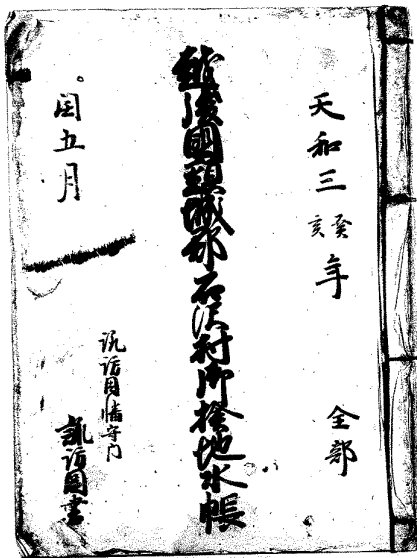 天和三癸亥年 全部
越後國頸城郡石沢村御検地水帳
閏五月
諏訪因幡守内
諏訪図書